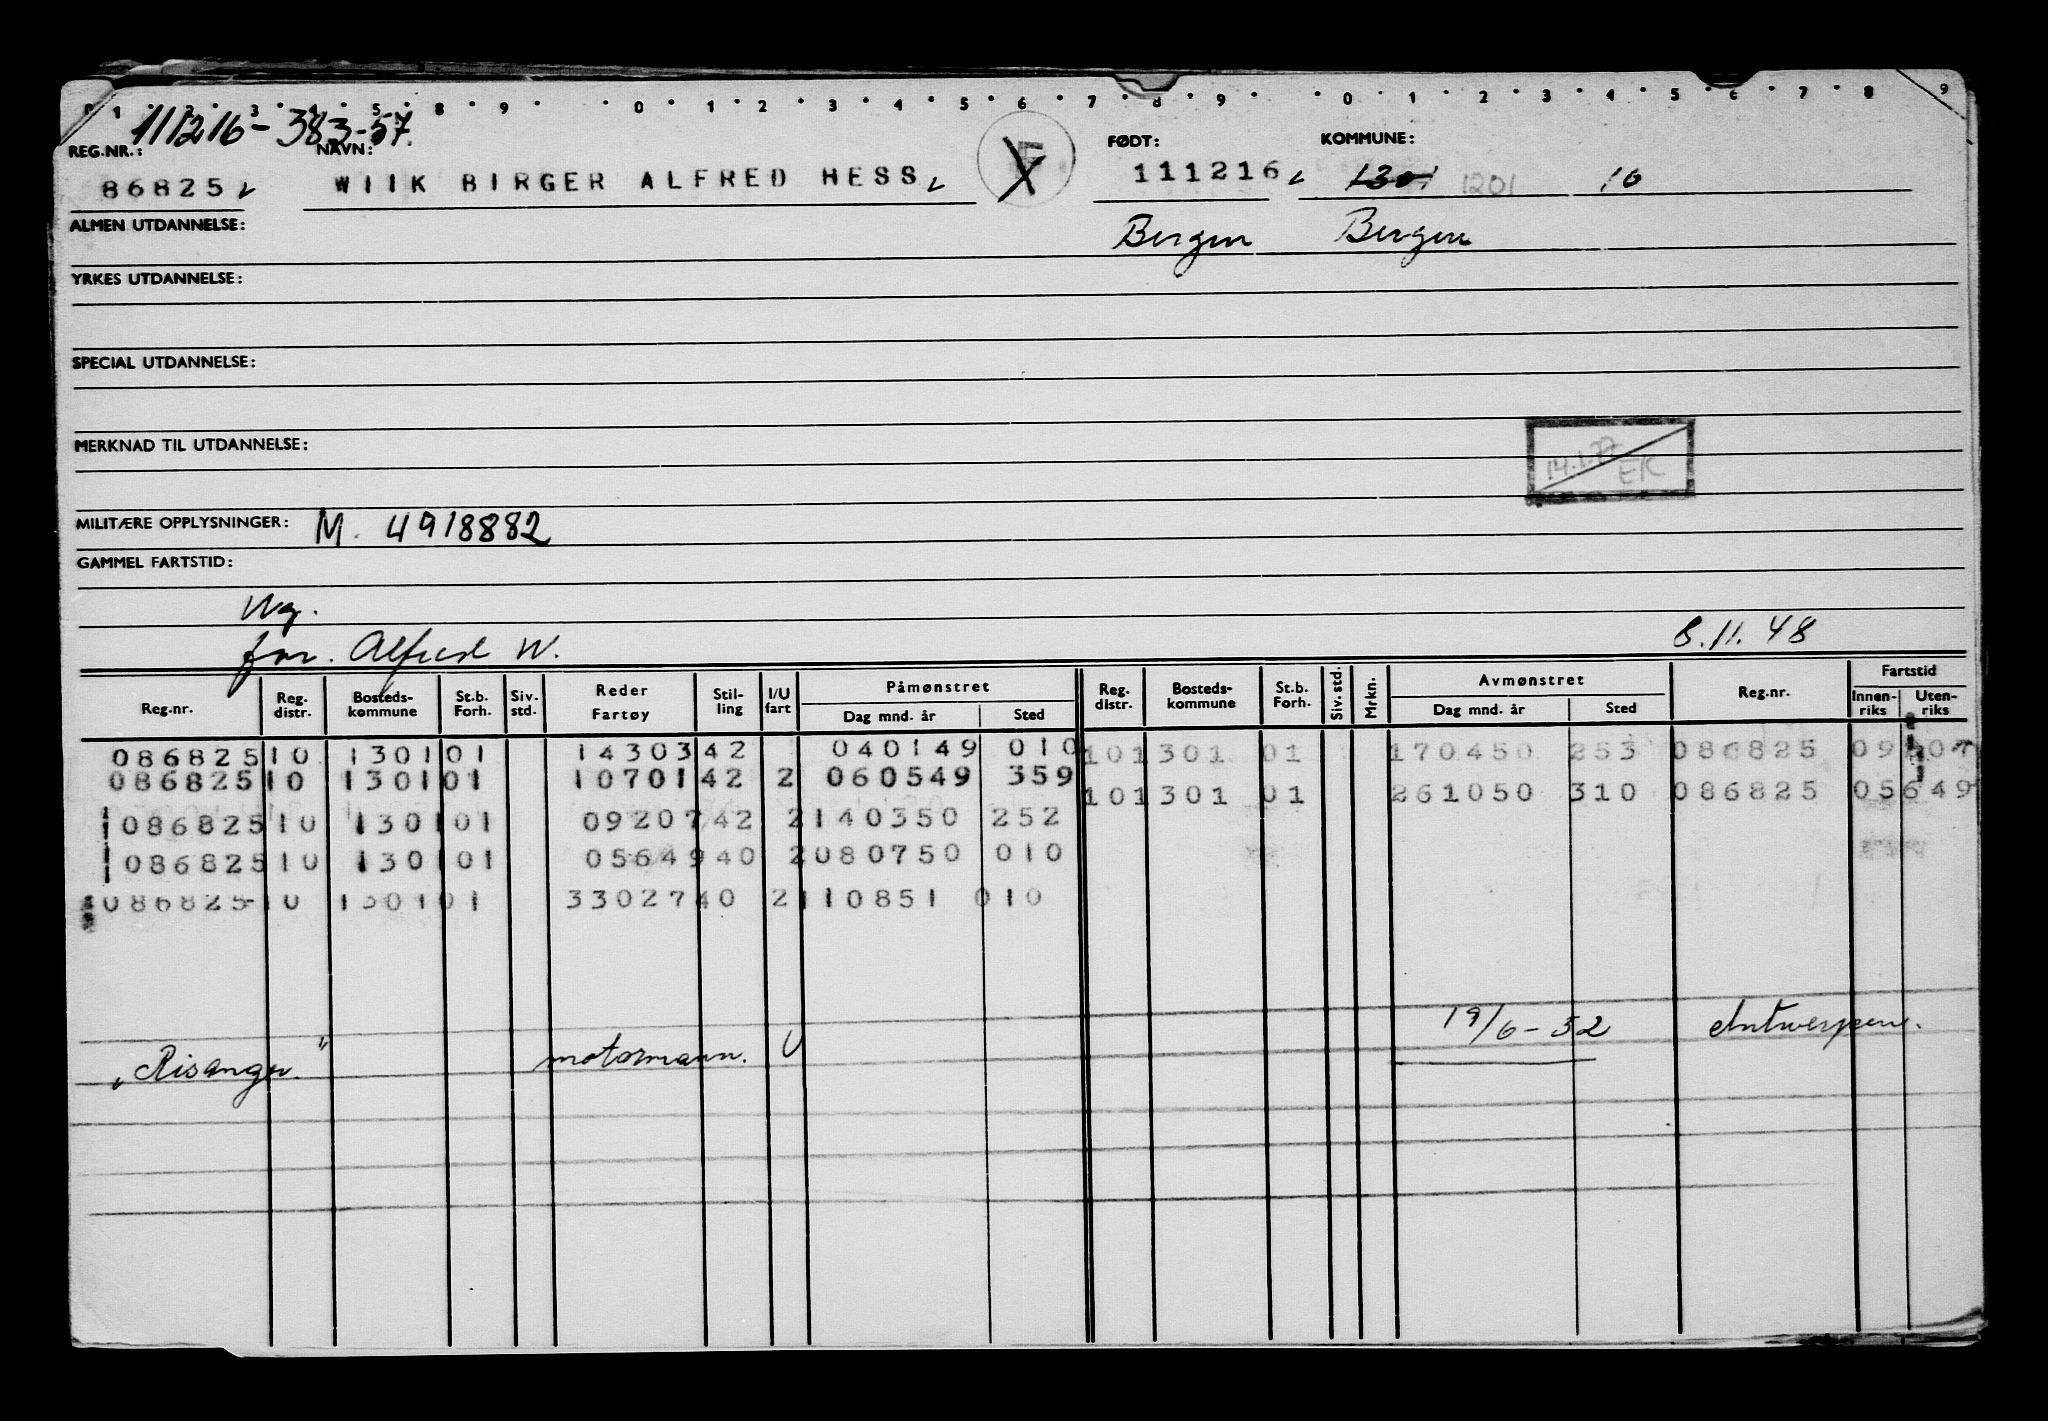 0 1 2 3 4 5 8 9 0 1 2 3 4 5 6 7 8 9 0 1 2 3 4 5 6 7 8 9
111216-383-57.
REG.NR.: NAVN: FØDT: KOMMUNE:
86825 WIIK BIRGER ALFRED HESS 111216 1301 1201 10
ALMEN UTDANNELSE: Bergen Bergen
YRKES UTDANNELSE:
SPECIAL UTDANNELSE:
MERKNAD TIL UTDANNELSE:
14.1.77 EK
MILITÆRE OPPLYSNINGER: M. 4918882
GAMMEL FARTSTID:
Ug.
far. Alfred W. 8.11.48
Reg.nr. Reg. distr. Bosteds-kommune St.b. Forh. Siv. std. Reder Fartøy Stil-ling I/U fart Påmønstret Dag mnd. år Sted Reg. distr. Bosteds-kommune St.b. Forh. Siv. std. Mrkn. Avmønstret Dag mnd. år Sted Reg.nr. Fartstid Innen-riks Uten-riks
086825 10 1301 01 14303 42 040149 010 10 1301 01 170450 253 086825 09207
086825 10 1301 01 10701 42 2 060549 359 10 1301 01 261050 310 086825 05649
086825 10 1301 01 09207 42 2 140350 252
086825 10 1301 01 05649 40 2 080750 010
086825 10 1301 01 33027 40 2 110851 010
"Risanger" motormann. U 19/6-52 Antwerpen.